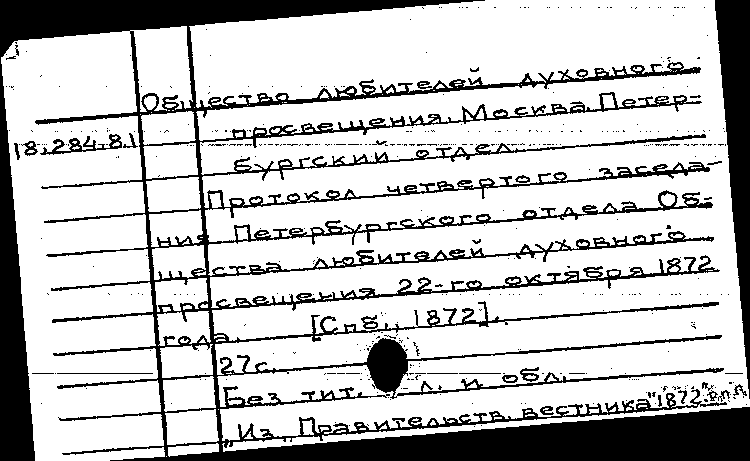 Общество любителей духовного
18.284.8.1 просвещения. Москва. Петер-
бургский отдел.
Протокол четвертого заседа-
ния Петербургского отдела Об-
щества любителей духовного
просвещения 22-го октября 1872
года. [Спб., 1872].
27с.
Без тит. л. и обл.
"Из „Правительств. вестника" 1872"